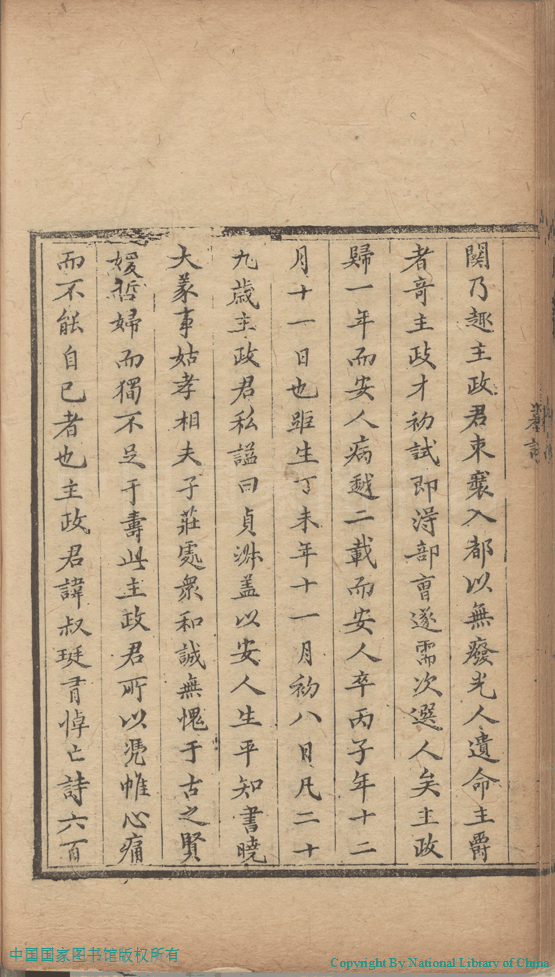 閱乃趣主政君束裝入都以無廢先人遺命主爵
者竒主政才初試即淂部曺遂需次選人矣主政
歸一年而安人病越二載而安人卒丙子年十二
月十一日也距生丁未年十一月初八日凡二十
九歲主政君私謚曰貞淋盖以安人生平知書曉
大義事姑孝相夫子莊處衆和誠無愧于古之賢
媛哲婦而獨不足于壽此主政君所以凭帷心痛
而不能自已者也主政君諱叔珽有悼亡詩六百
中国国家图书馆版权所有
Copyright By National Library of China